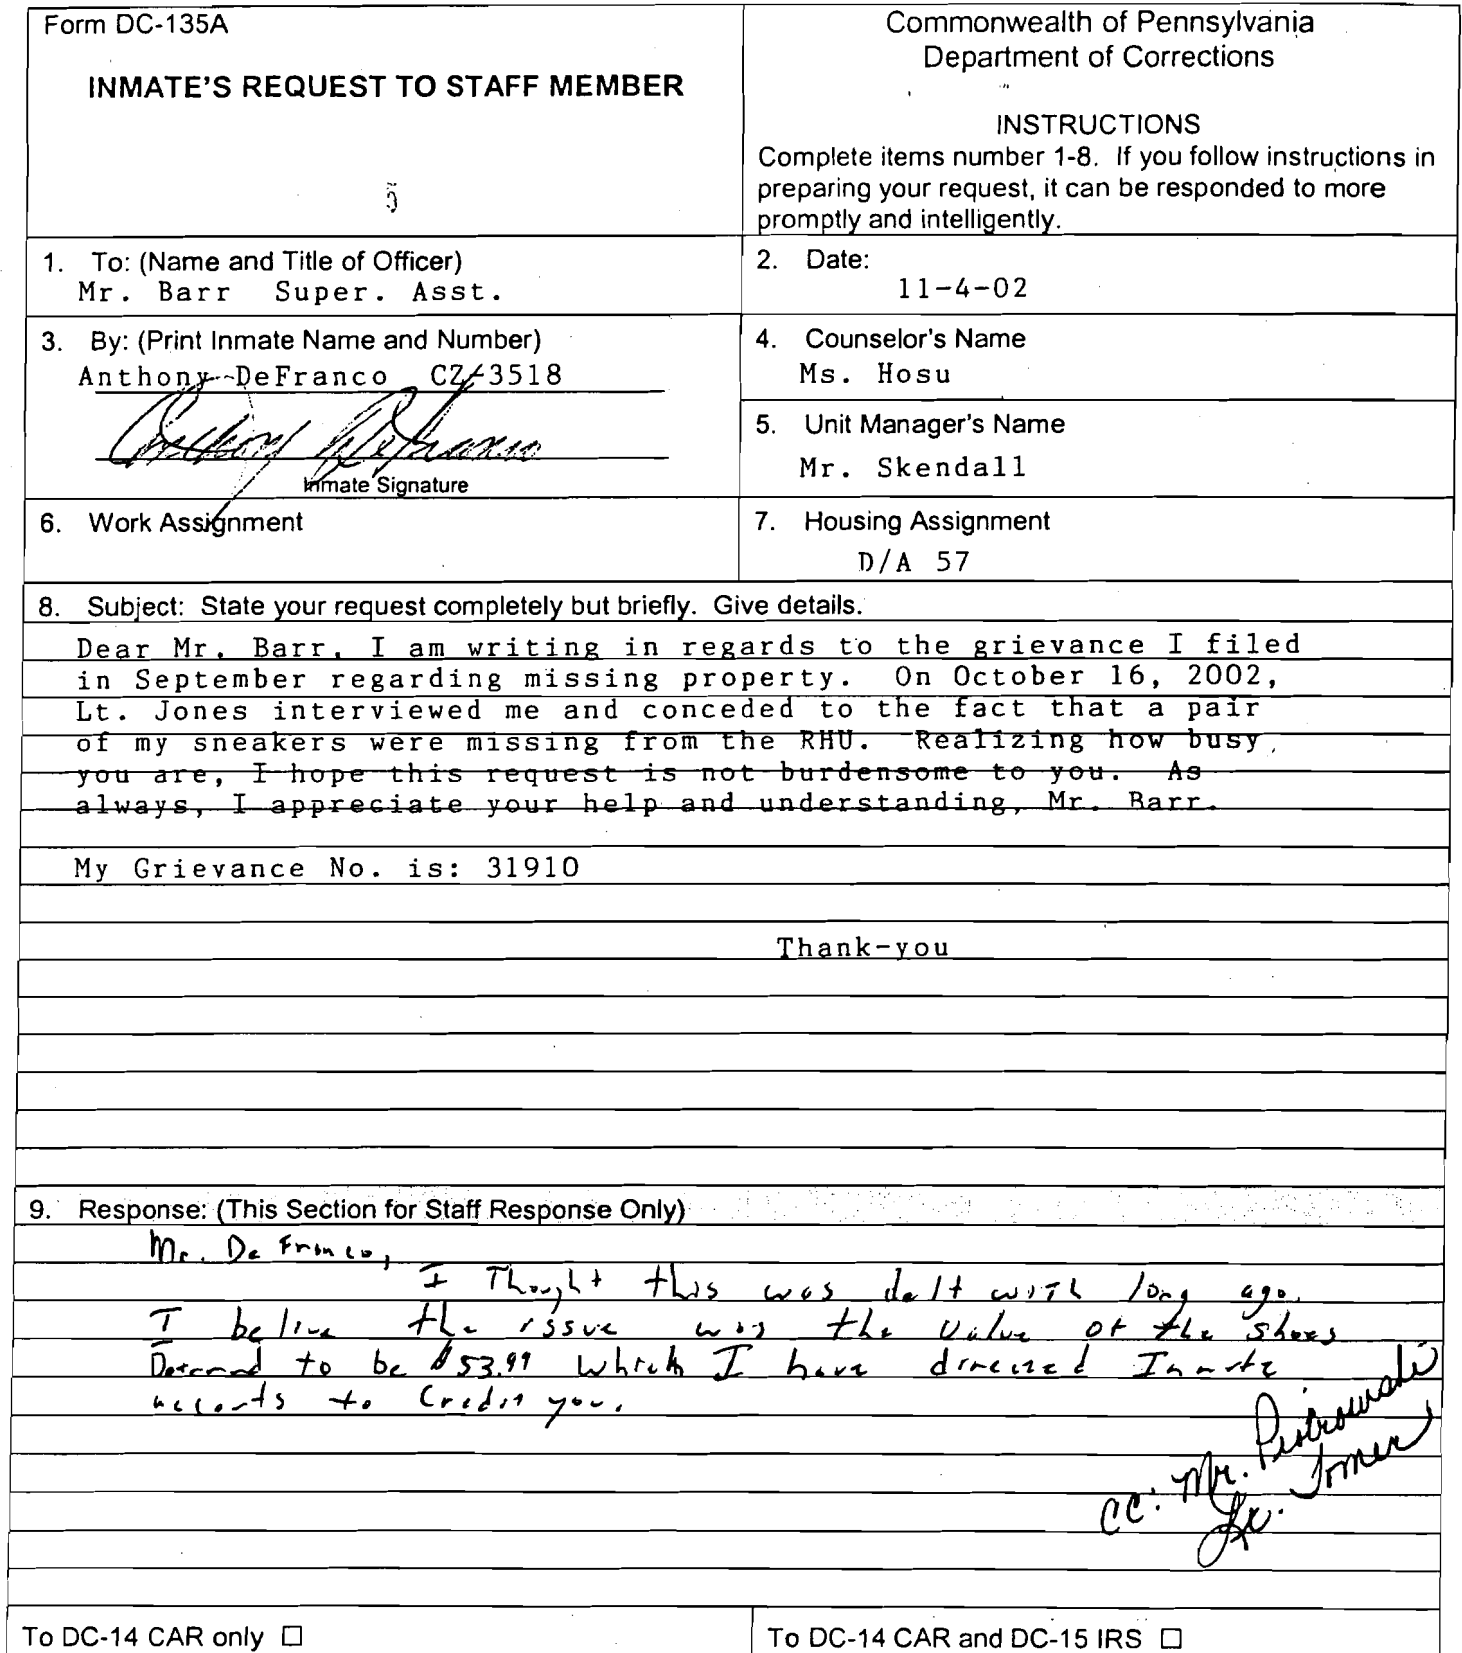 Form DC-135A
INMATE'S REQUEST TO STAFF MEMBER
Commonwealth of Pennsylvania
Department of Corrections
INSTRUCTIONS
Complete items number 1-8. If you follow instructions in
preparing your request, it can be responded to more
promptly and intelligently.
1. To: (Name and Title of Officer)
Mr. Barr Super. Asst.
2. Date:
11-4-02
3. By: (Print Inmate Name and Number)
Anthony DeFranco CZ/3518
Anthony DeFranco
Inmate Signature
4. Counselor's Name
Ms. Hosu
5. Unit Manager's Name
Mr. Skendall
6. Work Assignment
7. Housing Assignment
D/A 57
8. Subject: State your request completely but briefly. Give details.
Dear Mr. Barr, I am writing in regards to the grievance I filed
in September regarding missing property. On October 16, 2002,
Lt. Jones interviewed me and conceded to the fact that a pair
of my sneakers were missing from the RHU. Realizing how busy
you are, I hope this request is not burdensome to you. As
always, I appreciate your help and understanding, Mr. Barr.
My Grievance No. is: 31910
Thank-you
9. Response: (This Section for Staff Response Only)
Mr. DeFranco,
I Thought this was delt with long ago.
I belive the issue was the value of the shoes
to be $53.99 which I have directed Inmate
accounts to Credit you.
cc: Mr. Piotrowski
To DC-14 CAR only ☐
To DC-14 CAR and DC-15 IRS ☐